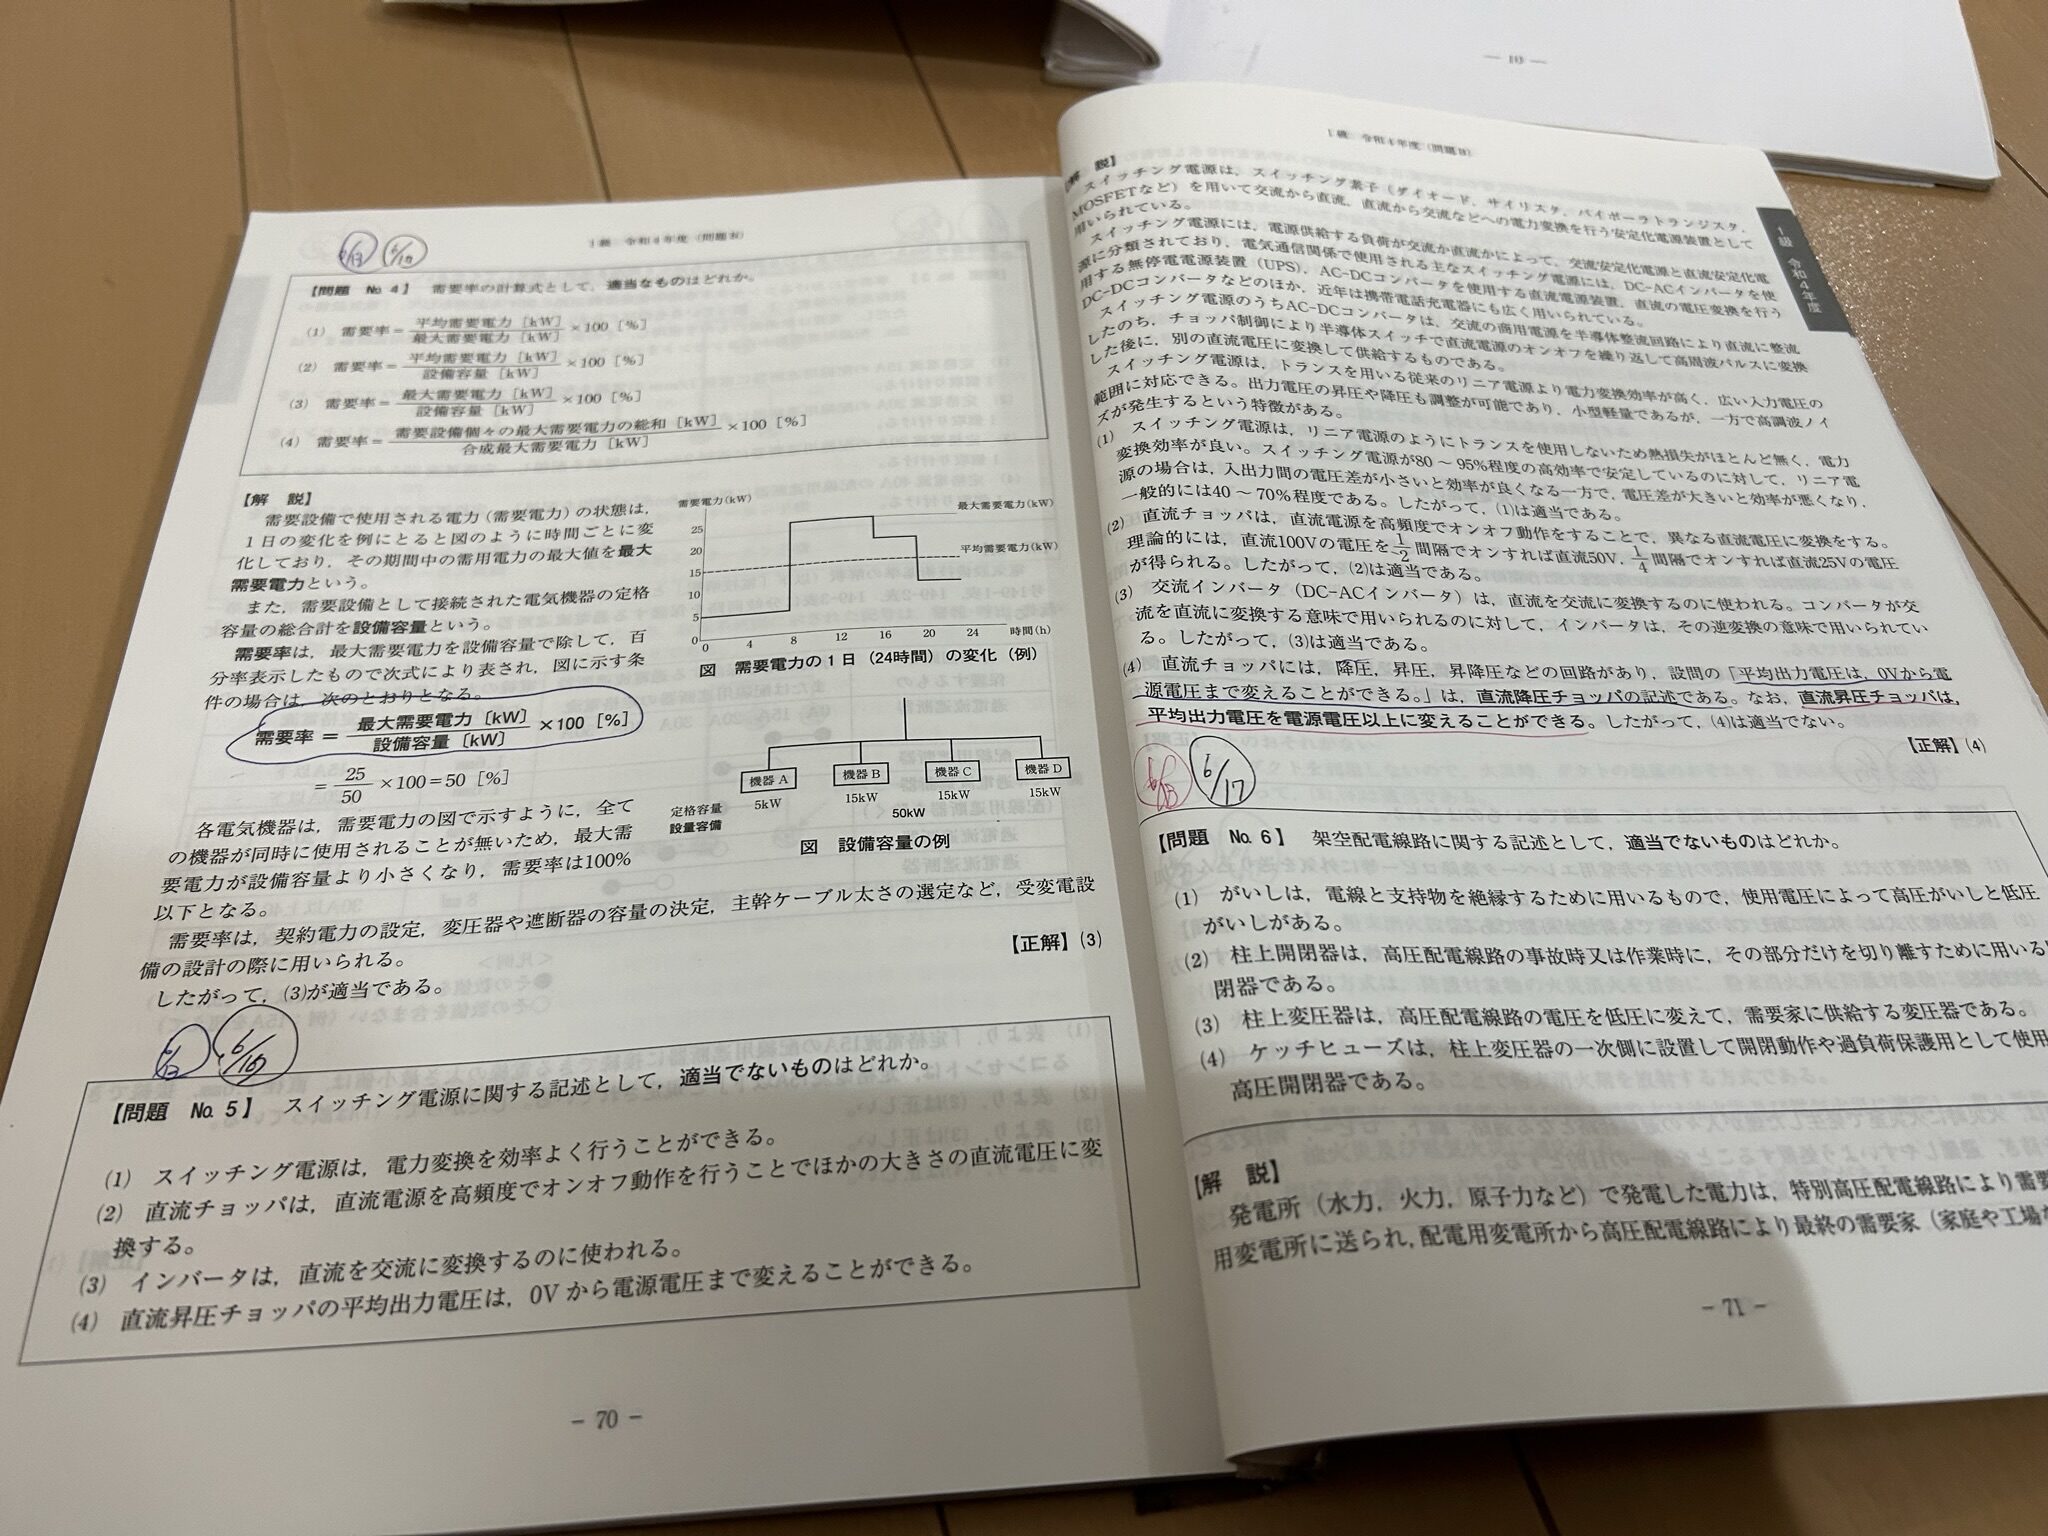 — 10 —
1級 令和4年度（問題B）
6/13
6/19
【問題 No. 4】 需要率の計算式として，適当なものはどれか。
(1) 需要率＝平均需要電力〔kW〕/最大需要電力〔kW〕×100［%］
(2) 需要率＝平均需要電力〔kW〕/設備容量〔kW〕×100［%］
(3) 需要率＝最大需要電力〔kW〕/設備容量〔kW〕×100［%］
(4) 需要率＝需要設備個々の最大需要電力の総和〔kW〕/合成最大需要電力〔kW〕×100［%］
【解 説】
需要設備で使用される電力（需要電力）の状態は，
1日の変化を例にとると図のように時間ごとに変
化しており，その期間中の需用電力の最大値を最大
需要電力という。
また，需要設備として接続された電気機器の定格
容量の総合計を設備容量という。
需要率は，最大需要電力を設備容量で除して，百
分率表示したもので次式により表され，図に示す条
件の場合は，次のとおりとなる。
需要率 ＝ 最大需要電力〔kW〕/設備容量〔kW〕 ×100［%］
＝ 25/50 ×100＝50［%］
需要電力(kW)
25
20
15
10
5
0
0 4 8 12 16 20 24 時間(h)
最大需要電力(kW)
平均需要電力(kW)
図 需要電力の1日（24時間）の変化（例）
機器A 機器B 機器C 機器D
定格容量 5kW 15kW 15kW 15kW
設量容備 50kW
図 設備容量の例
各電気機器は，需要電力の図で示すように，全て
の機器が同時に使用されることが無いため，最大需
要電力が設備容量より小さくなり，需要率は100%
以下となる。
需要率は，契約電力の設定，変圧器や遮断器の容量の決定，主幹ケーブル太さの選定など，受変電設
備の設計の際に用いられる。
したがって，(3)が適当である。
【正解】(3)
6/13
【問題 No. 5】 スイッチング電源に関する記述として，適当でないものはどれか。
(1) スイッチング電源は，電力変換を効率よく行うことができる。
(2) 直流チョッパは，直流電源を高頻度でオンオフ動作を行うことでほかの大きさの直流電圧に変
換する。
(3) インバータは，直流を交流に変換するのに使われる。
(4) 直流昇圧チョッパの平均出力電圧は，0V から電源電圧まで変えることができる。
－ 70 －
1級 令和4年度（問題B）
1級 令和4年度
【解 説】
スイッチング電源は，スイッチング素子（ダイオード，サイリスタ，バイポーラトランジスタ，
MOSFETなど）を用いて交流から直流，直流から交流などへの電力変換を行う安定化電源装置として
用いられている。
スイッチング電源には，電源供給する負荷が交流か直流かによって，交流安定化電源と直流安定化電
源に分類されており，電気通信関係で使用される主なスイッチング電源には，DC-ACインバータを使
用する無停電電源装置（UPS），AC-DCコンバータを使用する直流電源装置，直流の電圧変換を行う
DC-DCコンバータなどのほか，近年は携帯電話充電器にも広く用いられている。
スイッチング電源のうちAC-DCコンバータは，交流の商用電源を半導体整流回路により直流に整流
したのち，チョッパ制御により半導体スイッチで直流電源のオンオフを繰り返して高周波パルスに変換
した後に，別の直流電圧に変換して供給するものである。
スイッチング電源は，トランスを用いる従来のリニア電源より電力変換効率が高く，広い入力電圧の
範囲に対応できる。出力電圧の昇圧や降圧も調整が可能であり，小型軽量であるが，一方で高調波ノイ
ズが発生するという特徴がある。
(1) スイッチング電源は，リニア電源のようにトランスを使用しないため熱損失がほとんど無く，電力
変換効率が良い。スイッチング電源が80～95%程度の高効率で安定しているのに対して，リニア電
源の場合は，入出力間の電圧差が小さいと効率が良くなる一方で，電圧差が大きいと効率が悪くなり，
一般的には40～70%程度である。したがって，(1)は適当である。
(2) 直流チョッパは，直流電源を高頻度でオンオフ動作をすることで，異なる直流電圧に変換をする。
理論的には，直流100Vの電圧を1/2間隔でオンすれば直流50V，1/4間隔でオンすれば直流25Vの電圧
が得られる。したがって，(2)は適当である。
(3) 交流インバータ（DC-ACインバータ）は，直流を交流に変換するのに使われる。コンバータが交
流を直流に変換する意味で用いられるのに対して，インバータは，その逆変換の意味で用いられてい
る。したがって，(3)は適当である。
(4) 直流チョッパには，降圧，昇圧，昇降圧などの回路があり，設問の「平均出力電圧は，0Vから電
源電圧まで変えることができる。」は，直流降圧チョッパの記述である。なお，直流昇圧チョッパは，
平均出力電圧を電源電圧以上に変えることができる。したがって，(4)は適当でない。
【正解】(4)
6/13
6/17
【問題 No. 6】 架空配電線路に関する記述として，適当でないものはどれか。
(1) がいしは，電線と支持物を絶縁するために用いるもので，使用電圧によって高圧がいしと低圧
がいしがある。
(2) 柱上開閉器は，高圧配電線路の事故時又は作業時に，その部分だけを切り離すために用いる
閉器である。
(3) 柱上変圧器は，高圧配電線路の電圧を低圧に変えて，需要家に供給する変圧器である。
(4) ケッチヒューズは，柱上変圧器の一次側に設置して開閉動作や過負荷保護用として使用
高圧開閉器である。
【解 説】
発電所（水力，火力，原子力など）で発電した電力は，特別高圧配電線路により需要
用変電所に送られ，配電用変電所から高圧配電線路により最終の需要家（家庭や工場な
－ 71 －